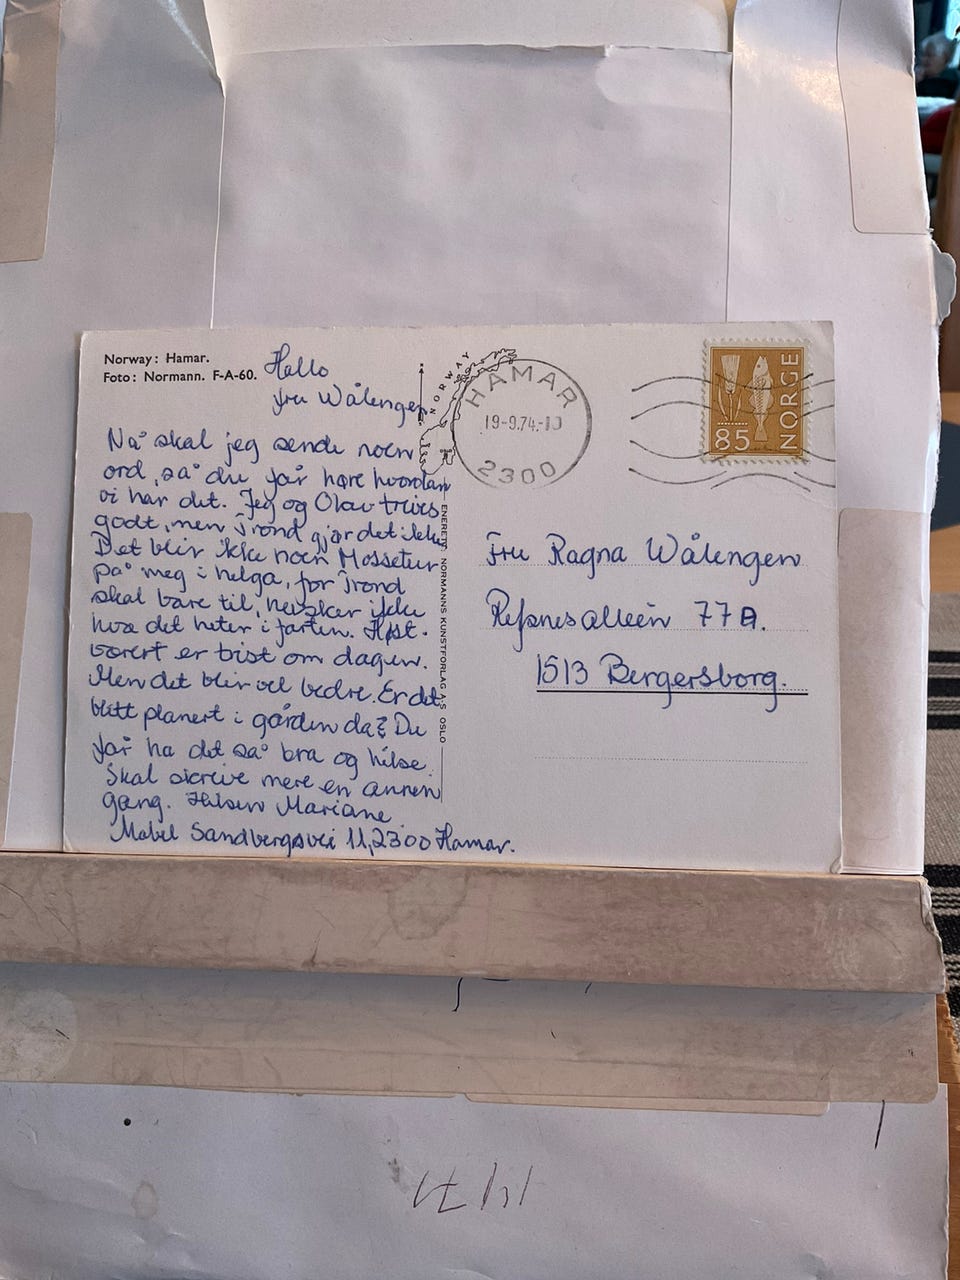 Norway: Hamar.
Foto: Normann. F-A-60.
Hallo
fru Wålengen
Nå skal jeg sende noen
ord, så du får høre hvordan
vi har det. Jeg og Olav trives
godt, men Trond gjør det ikke
Det blir ikke noen Mossetur
på meg i helga, for Trond
skal bare til, husker ikke
hva det heter i farten. Høst-
været er trist om dagen.
Men det blir vel bedre. Er det
blitt planert i gården da? Du
får ha det så bra og hilse.
Skal skrive mere en annen
gang. Hilsen Mariane
Mabel Sandbergsvei 11, 2300 Hamar.
NORWAY
ENERETT NORMANNS KUNSTFORLAG A.S OSLO
HAMAR
19-9.74.-10
2300
NORGE
85
Fru Ragna Wålengen
Refsnesalleèn 77A.
1513 Bergersborg.